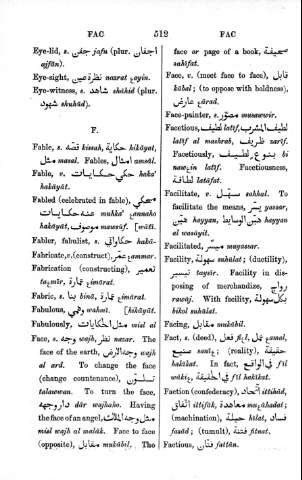 FAC 512 FAC
Eye-lid, s. جفن jafn (plur. اجفان
ajfān).
Eye-sight, نظرة عين nazrat عayin.
Eye-witness, s. شاهد shāhid (plur.
شهود shuhūd).
F.
Fable, s. قصّة kissah, حكاية hikāyat,
مثل masal. Fables, امثال amsāl.
Fable, v. حكي حكايات haka'
hakāyāt.
Fabled (celebrated in fable), محكي
عنه حكايات muhka' عannaho
hakāyāt, موصوف mawsūf. [wāti.
Fabler, fabulist, s. حكاواتي hakā-
Fabricate, v. (construct), عمّر عammar.
Fabrication (constructing), تعمير
taعmīr, عمارة عimārat.
Fabric, s. بنا binā, عمارة عimārat.
Fabulous, وهمي wahmi. [hikāyāt.
Fabulously, مثل الحكايات mial al
Face, s. وجه wajh, نظر nazar. The
face of the earth, وجه الارض wajh
al ard. To change the face
(change countenance), تلوّن
talawwan. To turn the face,
دار وجهه dār wajhaho. Having
the face of an angel, مثل وجه ملاك
mial wajh al malāk. Face to face
(opposite), مقابل mukābil. The
face or page of a book, صحيفة
sahīfat.
Face, v. (meet face to face), قابل
kābal; (to oppose with boldness),
عارض عārad.
Face-painter, s. مصوّر musawwir.
Facetious, لطيف المشرب، لطيف latīf,
latīf al mashrab, ظريف zarīf.
Facetiously, بنوع لطيف bi
nawعin latīf. Facetiousness,
لطافة latāfat.
Facilitate, v. سهّل sahhal. To
facilitate the means, يسّر yassar,
هيّن الوسايط hayyan, hayyan
al wasāyit.
Facilitated, ميسّر muyassar.
Facility, سهولة suhūlat; (ductility),
تيسير taysīr. Facility in dis-
posing of merchandize, رواج
rawāj. With facility, بكل سهولة
bikol suhūlat.
Facing, مقابل mukābil.
Fact, s. (deed), فعل fiعl, عمل عamal,
صنيع sanīع; (reality), حقيقة
hakīkat. In fact, في الواقع fīl
wākiع, في الحقيقة fīl hakīkat.
Faction (confederacy), اتّحاد ittihād,
اتفاق ittifāk, معاهدة muعāhadat;
(machination), حيلة hīlat, فساد
fasād; (tumult), فتنة fitnat.
Factious, فتّان fattān.